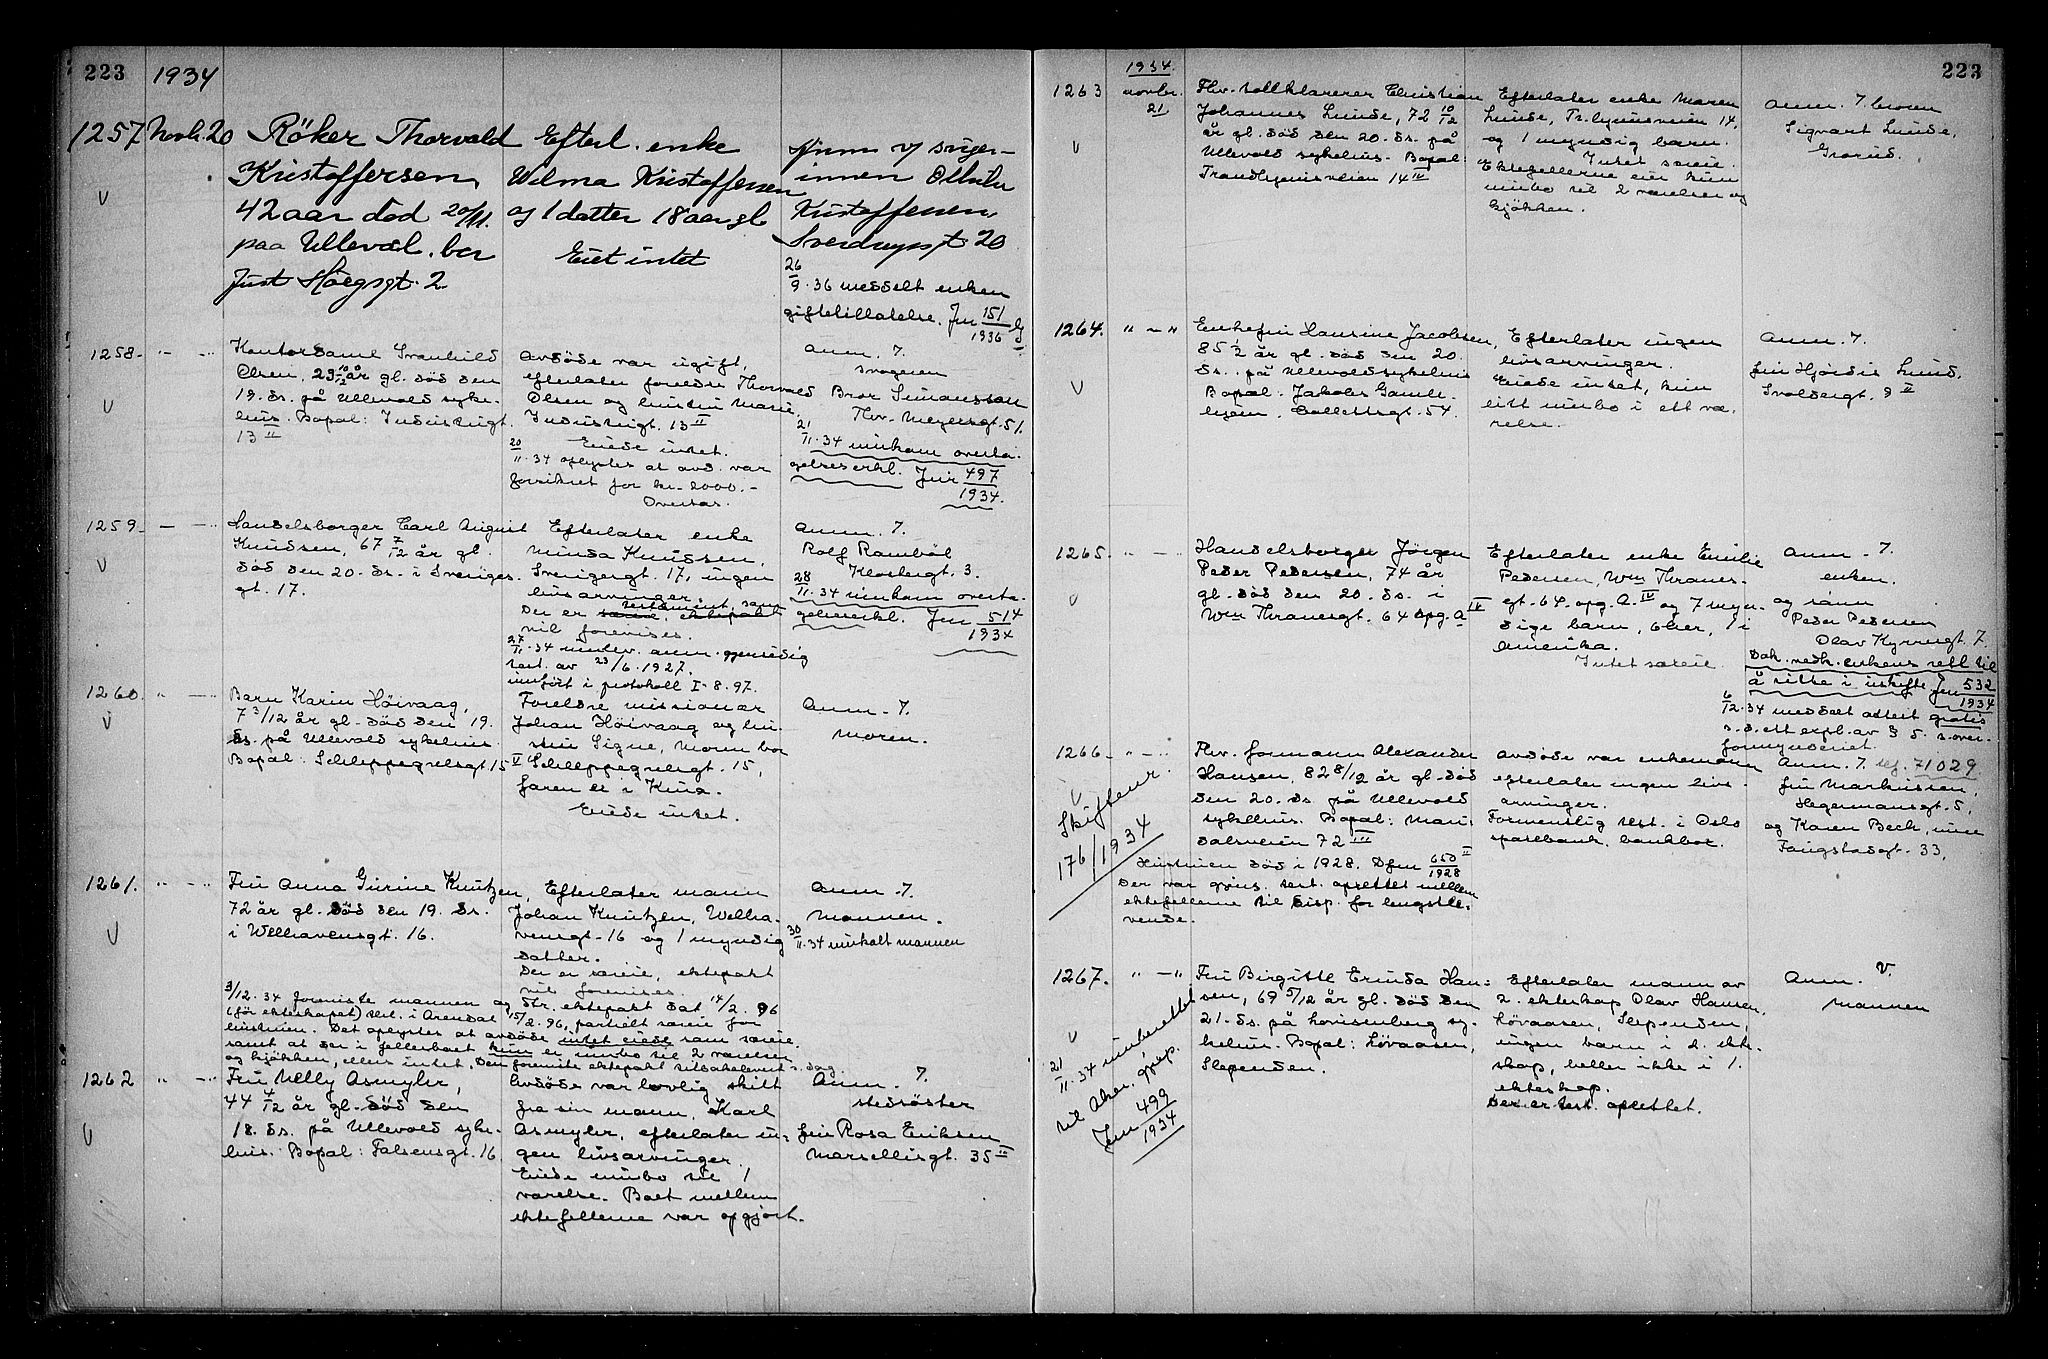 223 1934
1257 Novb. 20 Röker Thorvald
Kristoffersen,
42 aar död 20/11.
paa Ullevål. bor
Just Höegsgt. 2
Efterl. enke
Wilma Kristoffersen
og 1 datter 18 aar gl.
Eiet intet
Anm v/ sviger-
innen Othilie
Kristoffersen,
Sverdrupsgt 20
26/9.36 meddelt enken
giftetillatelse. Jnr 151/1936
1258. " - " Kontordame Svanhild
Olsen, 29 10/12 år gl. död den
19. ds. på Ullevål syke-
hus. Bopal: Industrigt.
13 II
Avdöde var ugift,
efterlater foreldre Thorvald
Olsen og hustru Marie,
Industrigt. 13 II
Eiede intet.
20/11.34 oplystes at avd. var
forsikret for kr. 2000.-
Overtas.
Anm. 7.
svogeren
Bror Simansson
Thv. Meyersgt. 51.
21/11.34 innkom overta-
gelseserkl. Jnr 497/1934.
1259. - - " Handelsborger Carl August
Knudsen, 67 7/12 år gl.
död den 20. ds. i Sveriges-
gt. 17.
Efterlater enke
Minda Knudsen,
Sverigesgt. 17, ingen
livsarvinger.
Der er testament, som
vil forevises.
27/11.34 innlev. anm. gjensidig
test. av 23/6.1927.
innfört i protokoll I-8.97.
Anm. 7.
Rolf Ramböl
Klostergt. 3.
28/11.34 innkom overta-
gelseserkl. Jnr 514/1934
1260. " - " Barn Karin Höivaag,
7 3/12 år gl. död den 19.
ds. på Ullevål sykehus.
Bopal: Schleppegrellsgt. 15 II
Foreldre missionær
Johan Höivaag og hu-
stru Signe, moren bor
Schleppegrellsgt. 15,
faren er i Kina.
Eiede intet.
Anm. 7.
moren.
1261. " - " Fru Anna Gurine Knutzen,
72 år gl. död den 19. ds.
i Welhavensgt. 16.
Efterlater mann
Johan Knutzen, Welha-
vensgt. 16 og 1 myndig
datter.
Der er særeie, ektepakt
vil forevises.
Anm. 7.
mannen.
30/11.34 innkalt mannen
3/12.34 foreviste mannen og str. ektepakt dat 14/2. 96
(för ekteskapet) test. i Arendal 15/2.96, partielt særeie for
hustruen. Det oplystes at avdöde intet eiede som særeie.
samt at der i fellesboet kun er innbo til 2 værelser
og kjökken, ellers intet. Den foreviste ektepakt tilbakelevert s. dag.
1262 " - " Fru Nelly Asmyhr,
44 4/12 år gl. död den
18. ds. på Ullevål syke-
hus. Bopal: Falsensgt. 16
Avdöde var lovlig skilt
fra sin mann, Karl
Asmyhr, efterlater in-
gen livsarvinger.
Eiede innbo til 1
værelse. Boet mellem
ektefellerne var opgjort.
Anm. 7.
stedsöster
fru Rosa Eriksen
Marselisgt. 35 III
1934. 223
1263 Novbr. 21 Fhv. tollklarerer Christian
Johannes Lunde, 72 10/12
år gl. död den 20. ds. på
Ullevål sykehus. Bopal:
Trondhjemsveien 14 IV
Efterlater enke Maren
Lunde, Tr.hjemsveien 14,
og 1 myndig barn.
Intet særeie.
Ektefellerne eier kun
innbo til 2 værelser og
kjökken.
Anm. 7. broren
Sigvart Lunde,
Grorud.
1264. " - " Enkefru Hansine Jacobsen,
85 1/2 år gl. död den 20.
ds. på Ullevål sykehus
Bopal: Jakobs Gamle-
hjem, Collettsgt. 54.
Efterlater ingen
livsarvinger.
Eiede intet, kun
litt innbo i ett væ-
relse.
Anm. 7.
fru Hjördis Lund,
Svoldergt. 9 II
1265. " - " Handelsborger Jörgen
Peder Pedersen, 74 år
gl. död den 20. ds. i
Wm Thranesgt. 64 opg. A IV
Efterlater enke Emilie
Pedersen, Wm Thranes-
gt. 64. opg. A. IV og 7 myn-
dige barn, 6 her, 1 i
Amerika.
Intet særeie.
Anm. 7.
enken.
og sönn
Peder Pedersen
Olav Kyrresgt. 7.
Dok. vedk. enkens rett til
å sitte i uskifte Jnr 532/1934
6/12.34 meddelt attest gratis
s. d. ett expl. av § 5. s. over-
formynderiet.
1266. " - " Fhv. formann Alexander
Hansen, 82 8/12 år gl. död
den 20. ds. på Ullevål
sykehus. Bopal: Mari-
dalsveien 72 III
Hustruen död i 1928. Dfnr 650/1928 II
Der var gjens. test. oprettet mellem
ektefellerne til disp. for lengstle-
vende.
Skiftenr.
176/1934
Avdöde var enkemann
efterlater ingen livs-
arvinger.
Formentlig test. i Oslo
sparebank, bankbox.
Anm. 7. tlf. 71029.
fru Markussen,
Hegermannsgt. 5,
og Karen Bech,
Fougstadsgt. 33,
1267. " - " Fru Birgitte Erinda Han-
sen, 69 5/12 år gl. död den
21. ds. på Lovisenberg sy-
kehus. Bopal: Lövaasen,
Slependen.
21/11.34 innberettet
til Aker
Jnr 499/1934
Efterlater mann av
2. ekteskap Olav Hansen,
Lövaasen, Slependen,
ingen barn i 2. ekte-
skap, heller ikke i 1.
ekteskap.
Der er test. oprettet.
Anm. V.
mannen